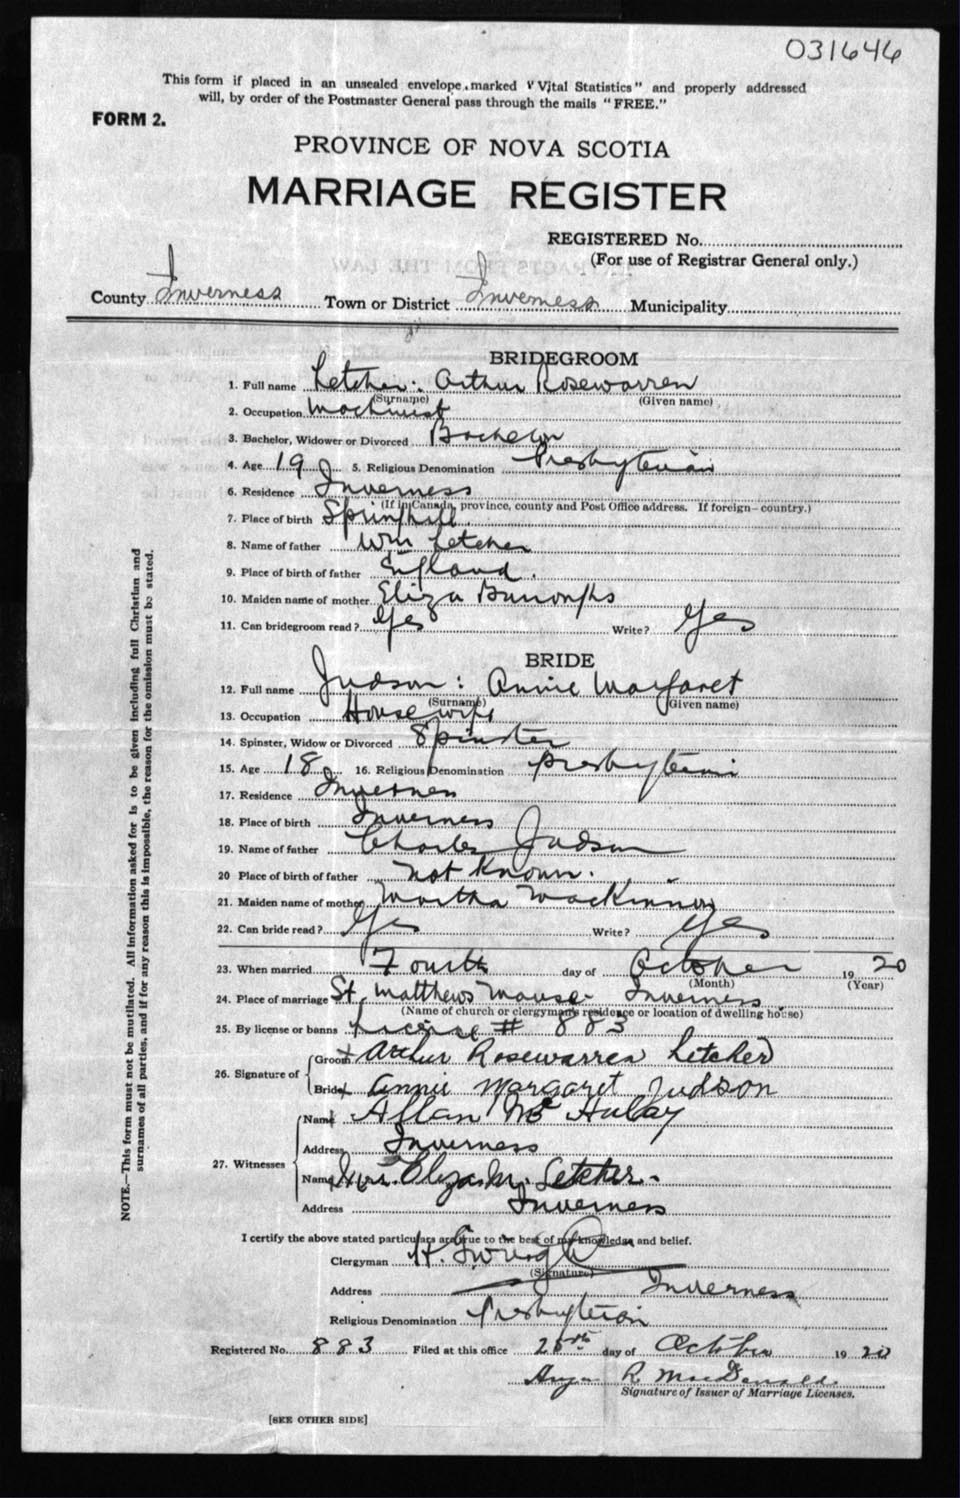 031646
This form if placed in an unsealed envelope, marked "Vital Statistics" and properly addressed
will, by order of the Postmaster General pass through the mails "FREE."
FORM 2.
PROVINCE OF NOVA SCOTIA
MARRIAGE REGISTER
REGISTERED No.
(For use of Registrar General only.)
County Inverness Town or District Inverness Municipality
BRIDEGROOM
1. Full name Letcher: Arthur Rosewarren
(Surname) (Given name)
2. Occupation Machinist
3. Bachelor, Widower or Divorced Bachelor
4. Age 19 5. Religious Denomination Presbyterian
6. Residence Inverness
(If in Canada, province, county and Post Office address. If foreign—country.)
7. Place of birth Springhill
8. Name of father Wm Letcher
9. Place of birth of father England.
10. Maiden name of mother Eliza Burroughs
11. Can bridegroom read? Yes Write? Yes
BRIDE
12. Full name Judson: Annie Margaret
(Surname) (Given name)
13. Occupation Housewife
14. Spinster, Widow or Divorced Spinster
15. Age 18 16. Religious Denomination Presbyterian
17. Residence Inverness
18. Place of birth Inverness
19. Name of father Charles Judson
20 Place of birth of father not known.
21. Maiden name of mother Martha MacKinnon
22. Can bride read? Yes Write? Yes
23. When married Fourth day of October 1920
(Month) (Year)
24. Place of marriage St. Matthews Manse Inverness
(Name of church or clergyman's residence or location of dwelling house)
25. By license or banns License # 883
26. Signature of
Groom x Arthur Rosewarren Letcher
Bride x Annie Margaret Judson
27. Witnesses
Name Allan Mc
Address Inverness
Name Mrs. Eliza M. Letcher.
Address Inverness
I certify the above stated particulars are true to the best of my knowledge and belief.
Clergyman H.
(Signature)
Address Inverness
Religious Denomination Presbyterian
Registered No. 883 Filed at this office day of October 1920
R. MacDonald.
Signature of Issuer of Marriage Licenses.
[SEE OTHER SIDE]
NOTE.—This form must not be mutilated. All information asked for is to be given including full Christian and
surnames of all parties, and if for any reason this is impossible, the reason for the omission must be stated.